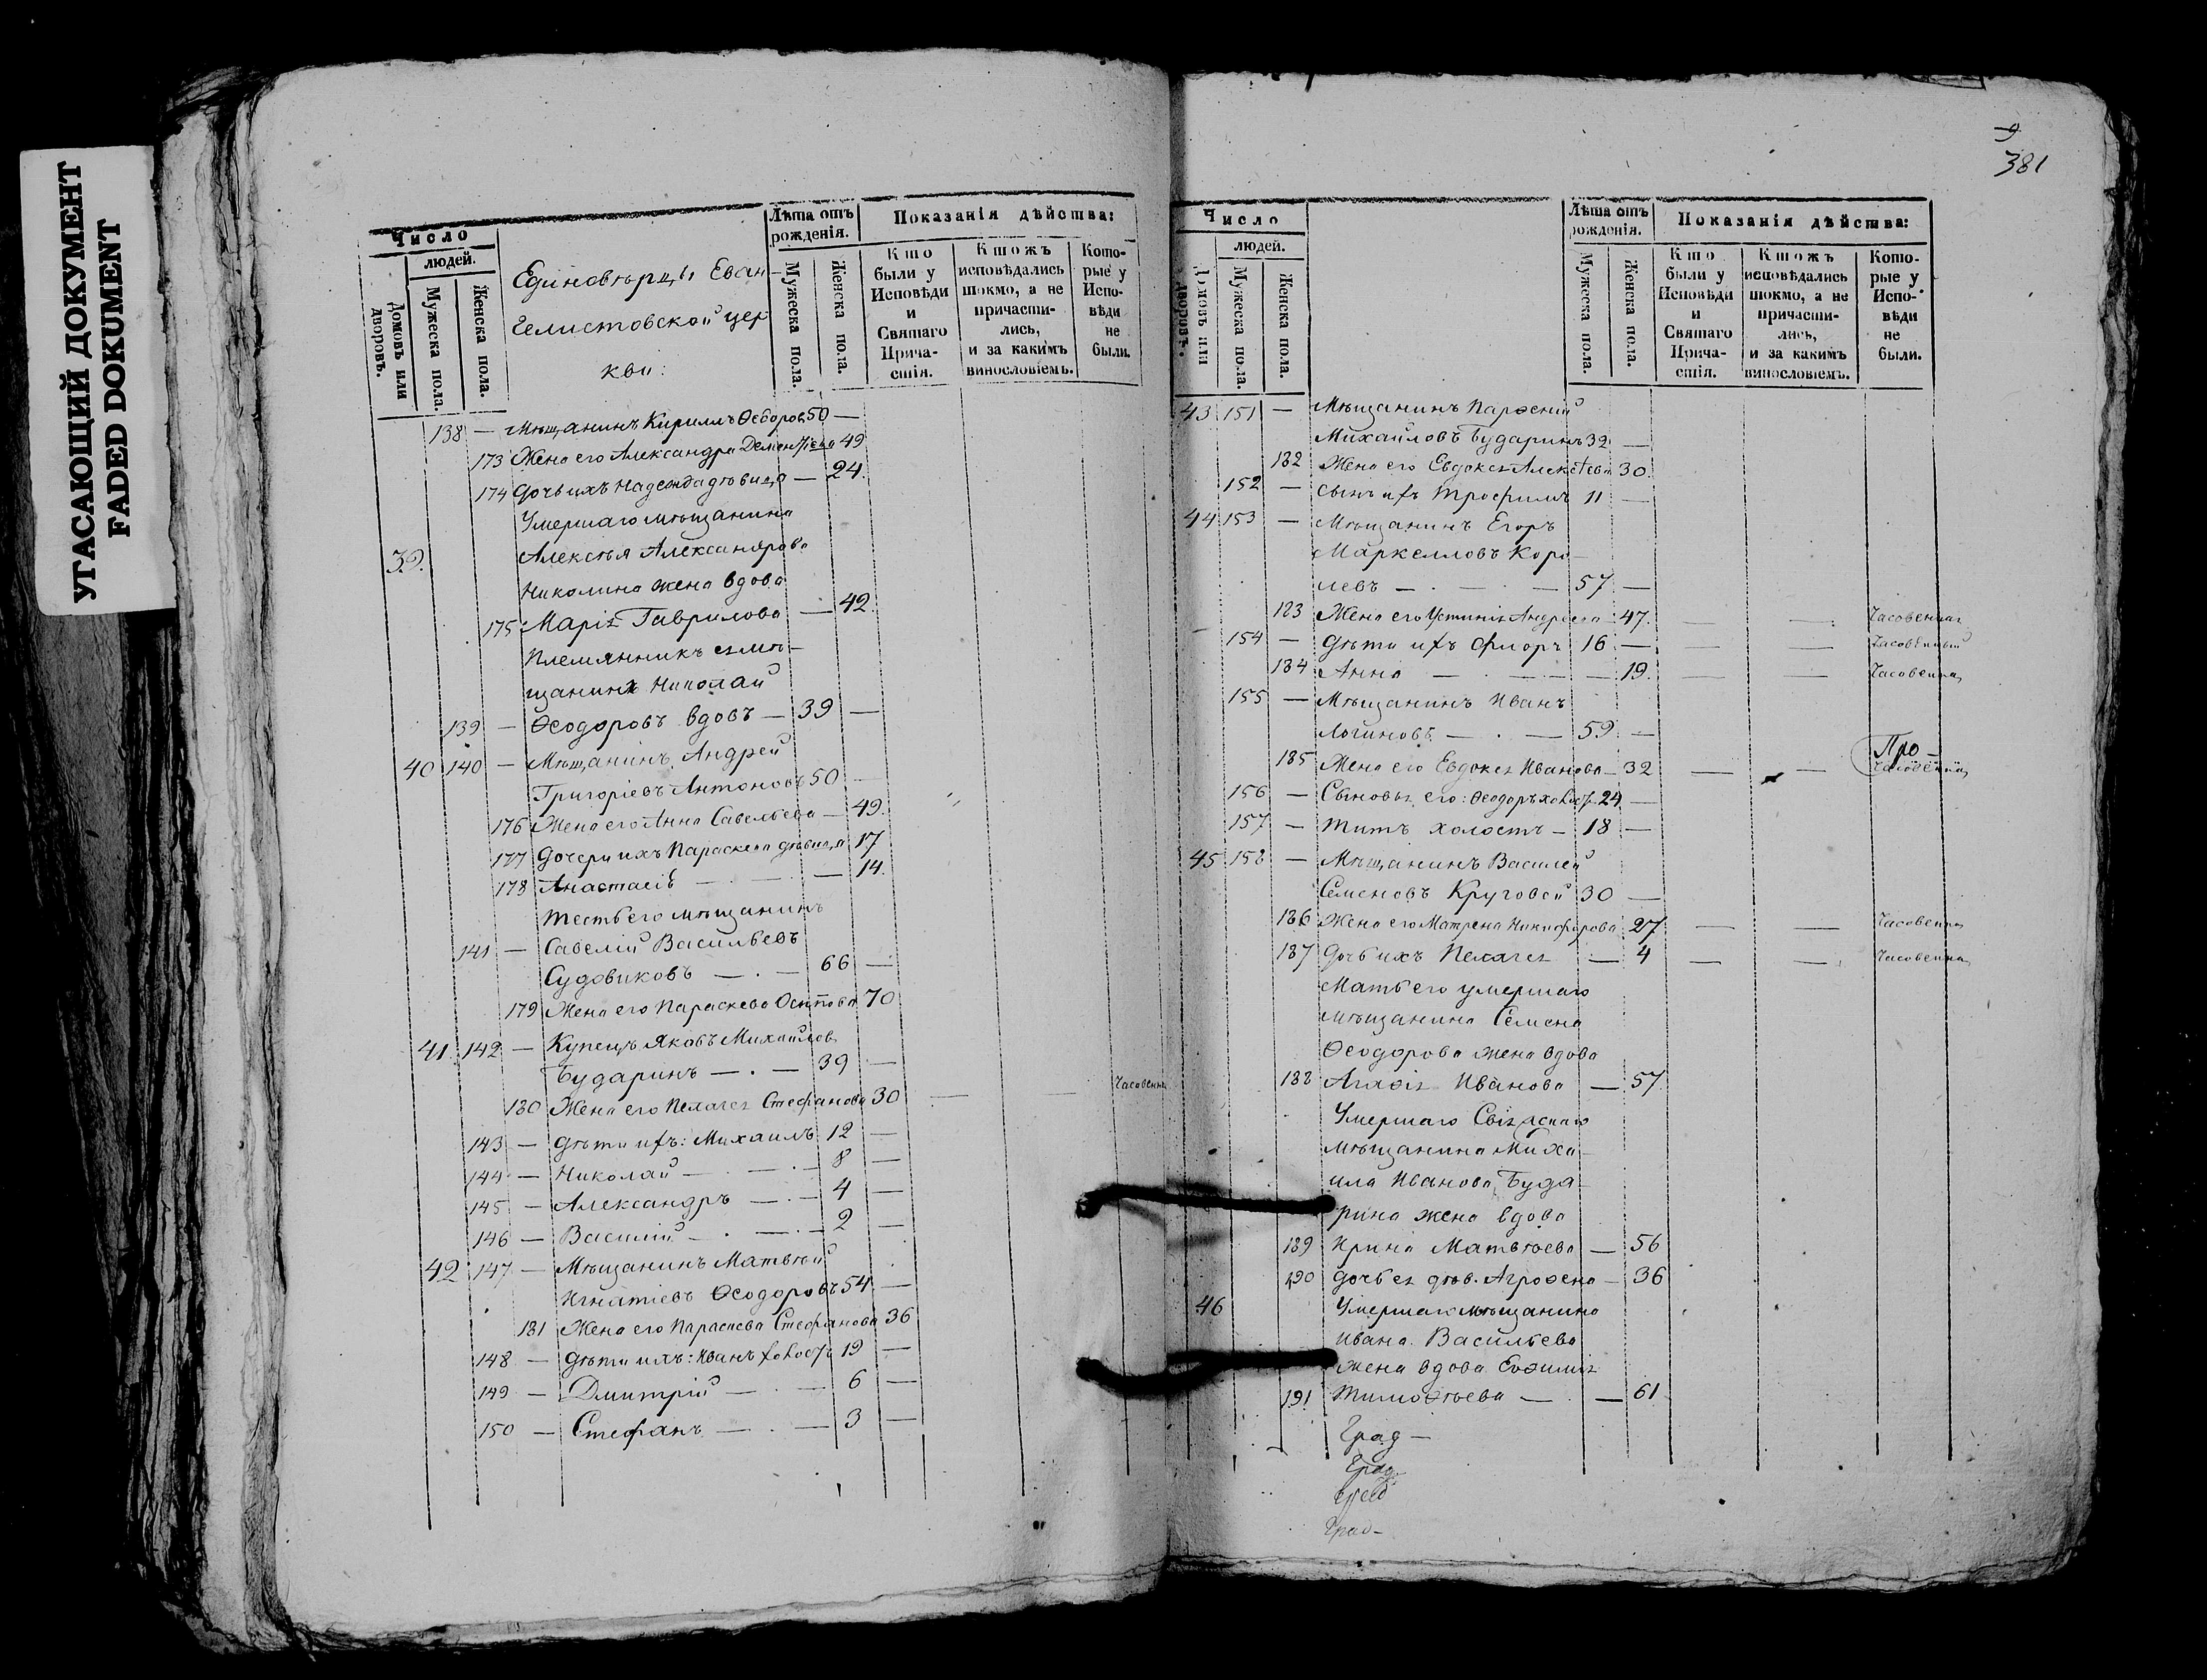 УГАСАЮЩИЙ ДОКУМЕНТ
FADED DOKUMENT
Число
людей.
Домовъ или дворовъ.
Мужеска пола.
Женска пола.
Единовѣрцы Еван-
гелистовской цер
кви:
Лѣта отъ рожденія.
Мужеска пола.
Женска пола.
Показанія дѣйства:
Кто были у Исповѣди и Святаго Прича-стія.
Ктожъ исповѣдались токмо, а не причасти-лись, и за какимъ винословіемъ.
Кото-рые у Испо-вѣди не были.
138 — Мѣщанинъ Кириллъ Ѳедоров 50 —
173 Жена его Александра Дементіева 49
174 Дочь ихъ Надежда дѣвица — 24.
Умершаго мѣщанина
39. Алексѣя Александрова
Николина жена вдова
175 Маріѧ Гаврилова — 42.
Племянникъ еѧ мѣ-
щанинъ Николай
139 — Ѳеодоровъ вдовъ — 39 —
40 140 — Мѣщанинъ Андрей
Григоріевъ Антоновъ 50 —
176 Жена его Анна Савельева — 49.
177 Дочери ихъ Параскева дѣвица 17
178 Анастасіѧ — . — . — 14.
Тесть его мѣщанинъ
141 — Савелій Васильевъ
Судовиковъ — . — 66 —
179 Жена его Параскева Осипова 70
41. 142 — Купецъ Яковъ Михайлов
Бударинъ — . — 39 —
180 Жена его Пелагеѧ Стефанова 30 — — Часовенна
143 — Дѣти ихъ: Михаилъ 12 —
144 — Николай — . — . — 8 —
145 — Александръ — . — 4 —
146 — Василій — . — . — 2 —
42 147 — Мѣщанинъ Матвѣй
Игнатіевъ Ѳеодоровъ 54 —
181 Жена его Параскева Стефанова 36
148 — Дѣти ихъ: Иванъ холостъ 19 —
149 — Дмитрій — . — 6 —
150 — Стефанъ — . — 3 —
9
381
Число
людей.
Домовъ или дворовъ.
Мужеска пола.
Женска пола.
Лѣта отъ рожденія.
Мужеска пола.
Женска пола.
Показанія дѣйства:
Кто были у Исповѣди и Святаго Прича-стія.
Ктожъ исповѣдались токмо, а не причасти-лись, и за какимъ винословіемъ.
Кото-рые у Испо-вѣди не были.
43 151 — Мѣщанинъ Парѳеній
Михайловъ Бударинъ 32 —
182 Жена его Евдокеѧ Алексѣева 30.
152 — Сынъ ихъ Трофимъ 11 —
44 153 — Мѣщанинъ Егоръ
Маркелловъ Коро-
левъ — . — 57 —
183 Жена его Устиніѧ Андреева 47. — — Часовеннаѧ
154 — Дѣти ихъ Флоръ 16 — — — Часовенный
184 Анна — . — — 19. — — Часовенна
155 — Мѣщанинъ Иванъ
Логиновъ — . — 59 —
185 Жена его Евдокеѧ Иванова — 32 — — Про- Часовенна
156 — Сыновьѧ его: Ѳеодоръ холостъ 24 —
157 — Титъ холостъ — 18 —
45 158 — Мѣщанинъ Василей
Семеновъ Круговой 30 —
186 Жена его Матрена Никифорова 27 — — Часовенна
187 Дочь ихъ Пелагеѧ — 4 — — Часовенна
Мать его умершаго
мѣщанина Семена
Ѳеодорова жена вдова
188 Агаѳіѧ Иванова — 57
Умершаго
мѣщанина Миха-
ила Иванова Буда-
рина жена вдова
189 Ирина Матвѣева — 56
190 Дочь еѧ дѣв. Агрофена — 36
46 Умершаго мѣщанина
Ивана Васильева
жена вдова Евѳиміѧ
191 Тимоѳѣева — . — 61
Град —
Град
Град-